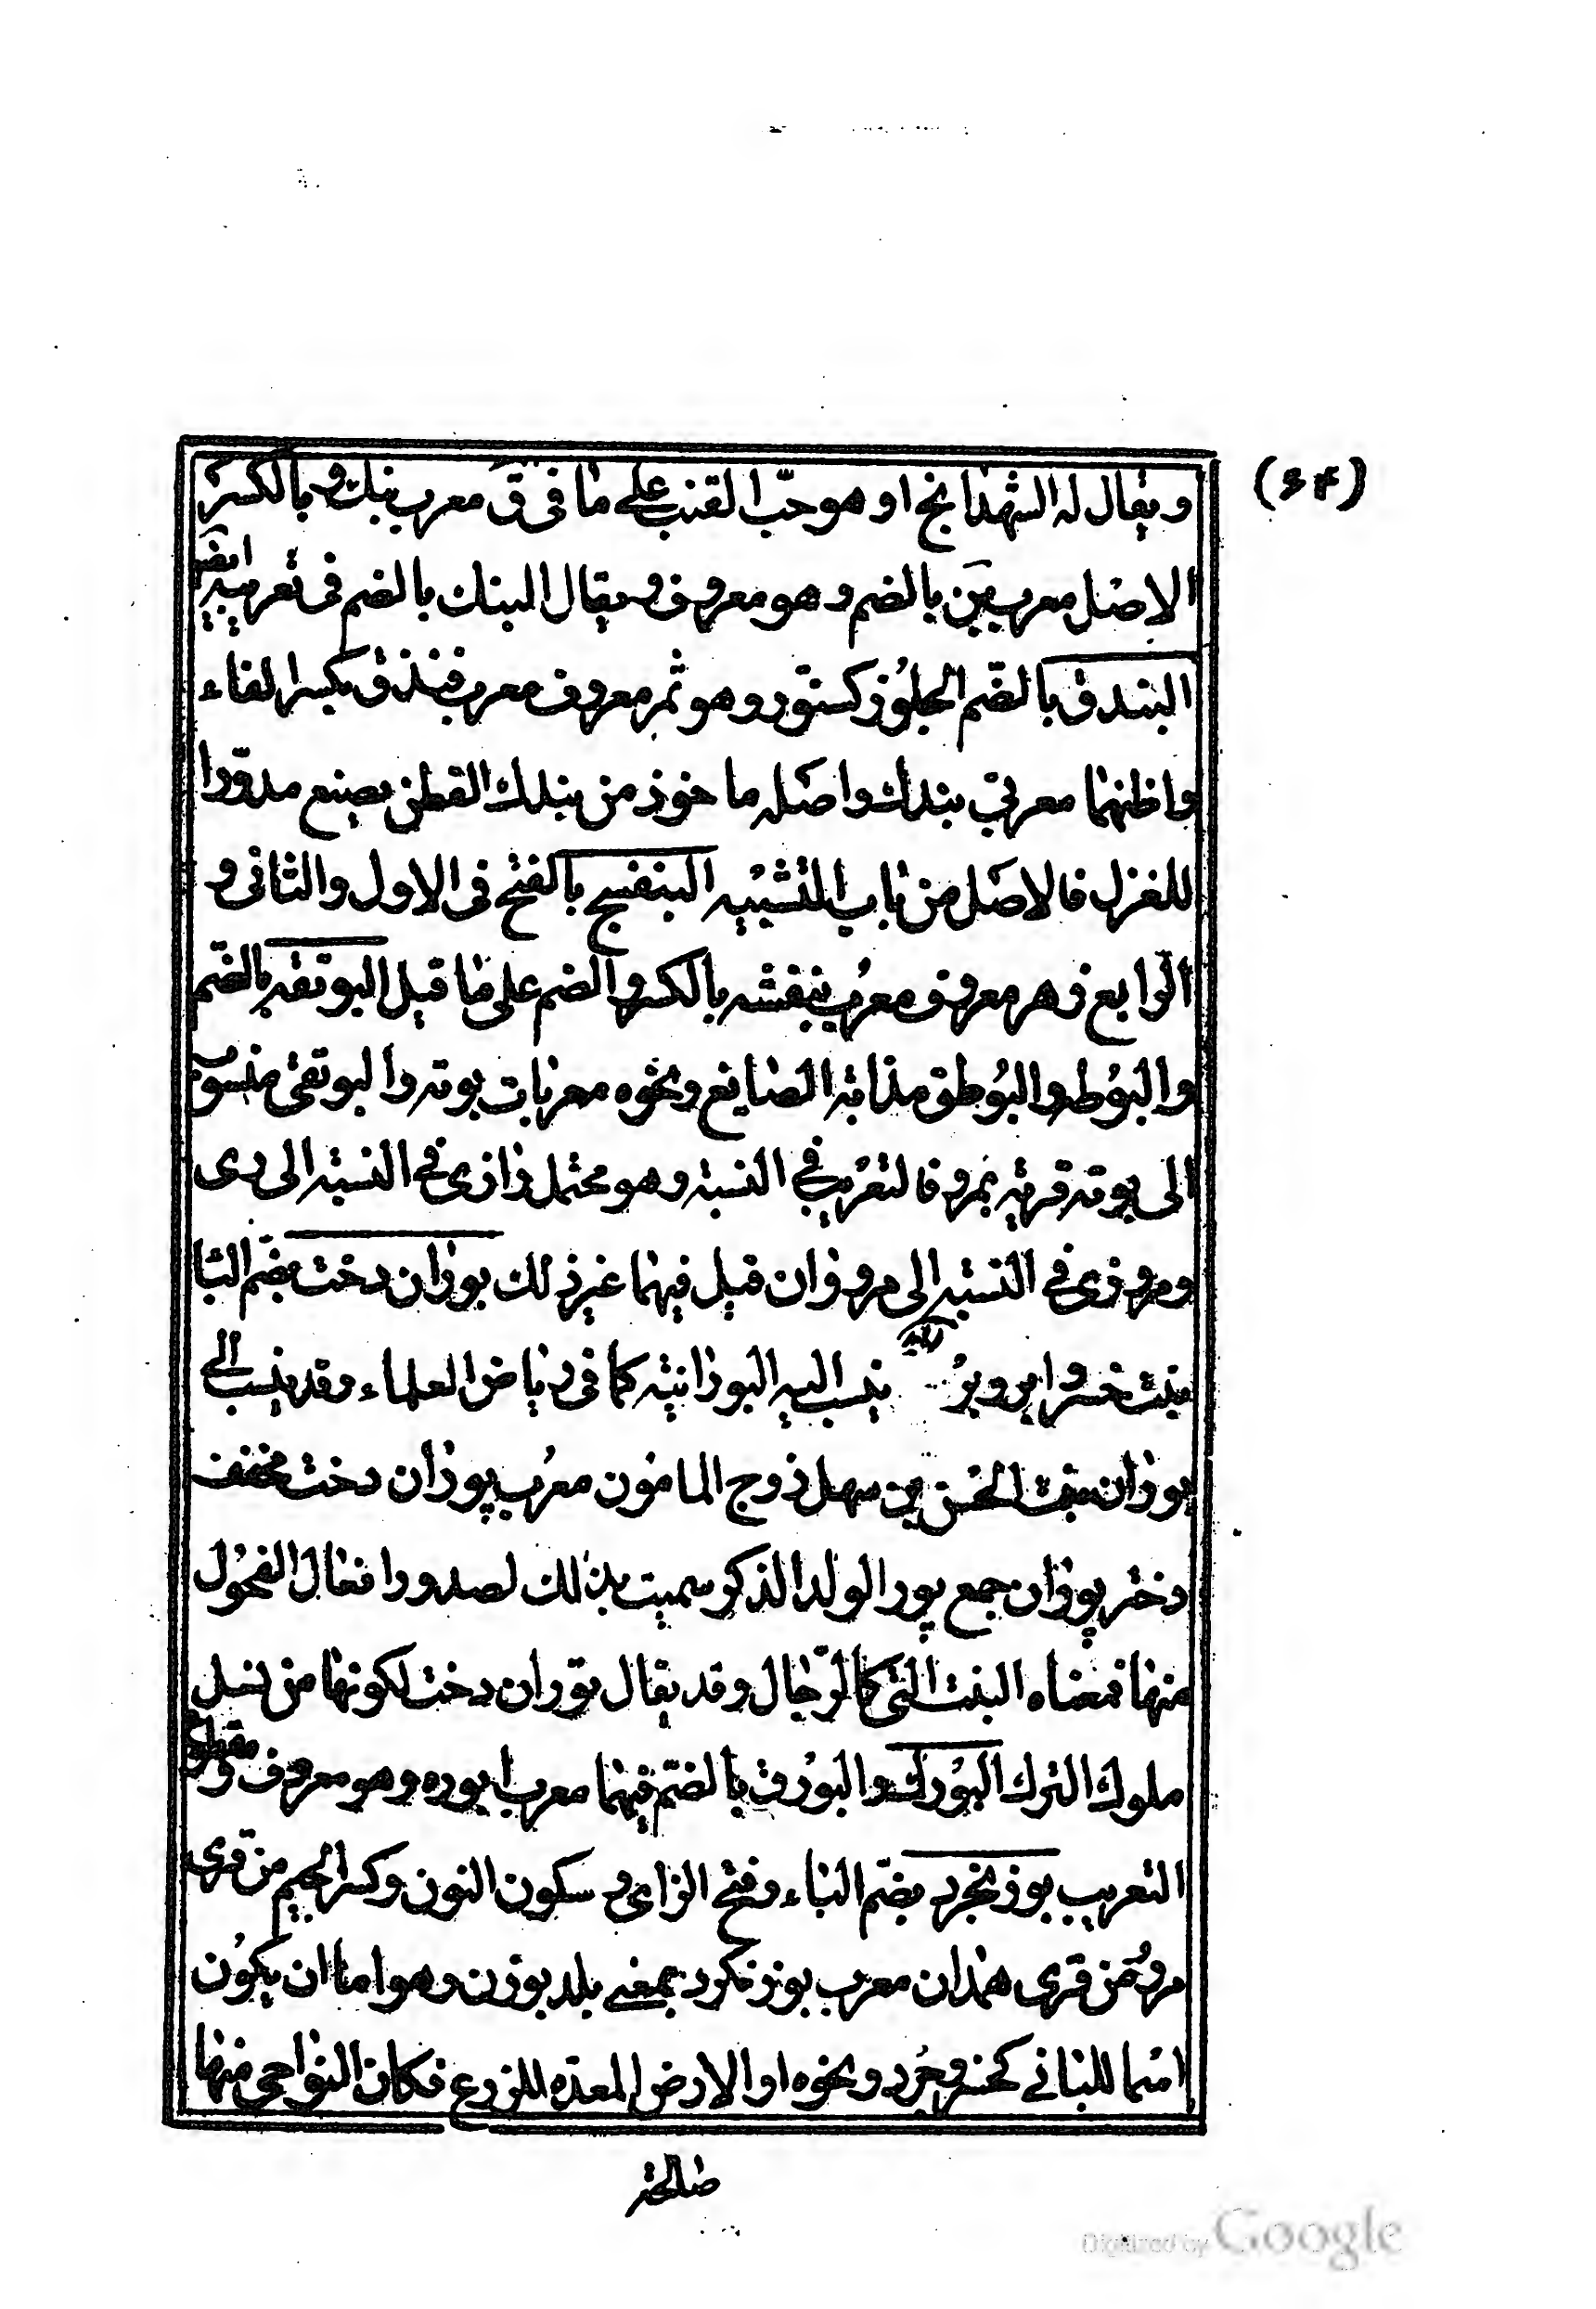 (٦۴)
ويقال له الشهدانج او هو حبّ القنب على ما فى ق معرب بنك وبالكسر
الاصل معرب بن بالضم وهو معروف ويقال البنك بالضم فى تعريبه ايضا
البندق بالضّم الجلوز كسنور وهو ثمر معروف معرب فندق بكسر الفاء
واظنهما معربى بندك واصله ماخوذ من بندك القطن يصنع مدوّرا
للغزل فالاصل من باب التشبيه البنفسج بالفتح فى الاول والثانى و
الرابع زهر معروف معرب بنفشه بالكسر والضم على ما قيل البوتقه بالضّم
والبوطه والبوطق مذابة الصايغ ونحوه معربات بوته والبوتقى منسوب
الى بوته قرية بمرو فالتعريب في النسبة وهو محتمل رازى في النسبة الى رى
ومروزى في النسبه الى مرو وان قيل فيهما غير ذلك بوران دخت بضم البا
بنت خسرو ابرويز ينسب اليه البورانية كما فى رياض العلماء وقد ينسب الى
بوران بنت الحسن بن سهل زوج المامون معرب پوران دخت مخفف
دختر پوران جمع پور الولد الذكر سميت بذلك لصدور افعال الفحول
منها فمعناه البنت التى كالرّجال وقد يقال توران دخت لكونها من نسل
ملوك الترك البورك والبورق بالضم فيهما معرب بوره وهو معروف و
التعريب بوزنجرد بضم الباء وفتح الزاى و سكون النون وكسر الجيم من قرى
مرو ومن قرى همدان معرب بوزنكرد بمعنى بلد بوزن وهو اما ان يكون
اسما للبانى كخسروجرد ونحوه او الارض المعده للزرع فكان النواحى منها
صالحة
Digitized by Google